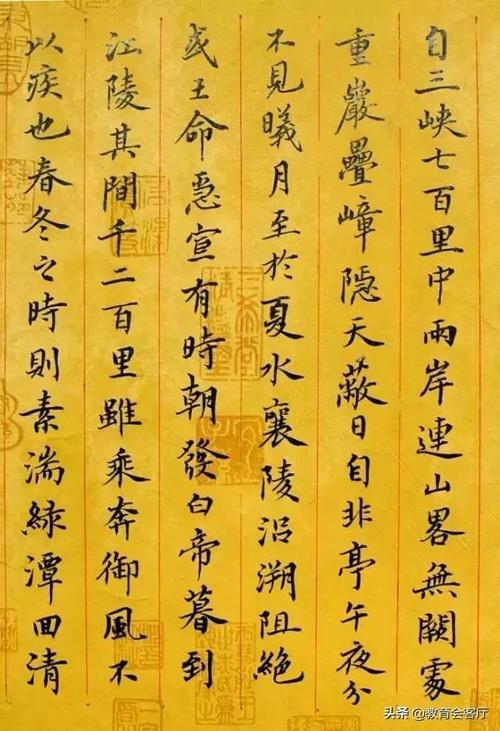 自三峡七百里中兩岸連山畧無闕處
重巖疊嶂隠天蔽日自非亭午夜分
不見曦月至於夏水襄陵沿溯阻絶
或王命急宣有時朝發白帝暮到
江陵其間千二百里雖乘奔御風不
以疾也春冬之時則素湍綠潭回清
头条 @教育会客厅